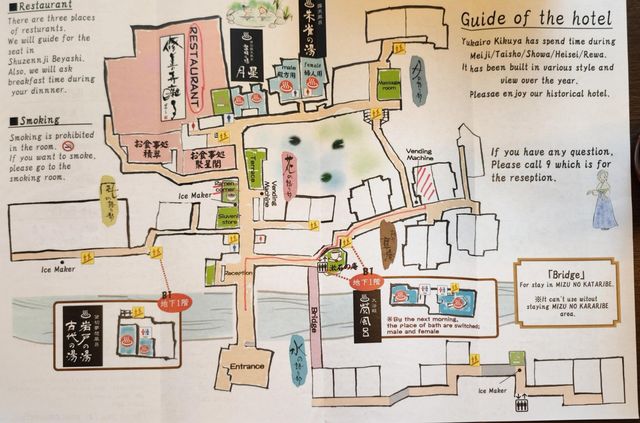 ■Restaurant
There are three places
of resturants.
We will guide for the
seat in
Shuzennji Beyashi.
Also, we will ask
breakfast time during
your dinnner.
■Smoking
Smoking is prohibited
in the room.
If you want to smoke,
please go to the
smoking room.
Guide of the hotel
Yukairo Kikuya has spend time during
Meiji/Taisho/Showa/Heisei/Rewa.
It has been built in various style and
view over the year.
Pleasae enjoy our historical hotel.
If you have any question,
Please call 9 which is for
the reseption.
「Bridge」
For stay in MIZU NO KATARIBE.
※It can't use witout
staying MIZU NO KARARIBE
area.
RESTAURANT
お食事処
積翠
お食事処
聚星閣
朱雀の湯
月星
male
殿方用
female
婦人用
room
Vending
Machine
Terrace
Vending
Machine
Ramen
corner
Ice Maker
Suvenir
store
Reception
Ice Maker
B1
地下1階
岩戸の湯
古代の湯
Entrance
Bridge
B1
地下1階
大浴殿
風呂
※By the next morning,
the place of bath are switched;
male and female
Ice Maker